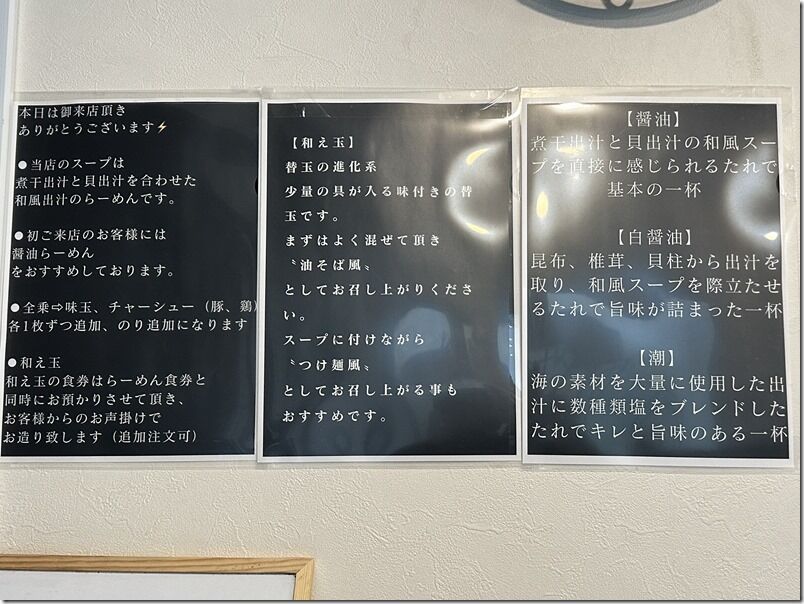 本日は御来店頂き
ありがとうございます⚡
●当店のスープは
煮干出汁と貝出汁を合わせた
和風出汁のらーめんです。
●初ご来店のお客様には
醤油らーめん
をおすすめしております。
●全乗⇨味玉、チャーシュー（豚、鶏）
各1枚ずつ追加、のり追加になります
●和え玉
和え玉の食券はらーめん食券と
同時にお預かりさせて頂き、
お客様からのお声掛けで
お造り致します（追加注文可）
【和え玉】
替玉の進化系
少量の具が入る味付きの替
玉です。
まずはよく混ぜて頂き
〝油そば風〟
としてお召し上がりくださ
い。
スープに付けながら
〝つけ麺風〟
としてお召し上がる事も
おすすめです。
【醤油】
煮干出汁と貝出汁の和風スー
プを直接に感じられるたれで
基本の一杯
【白醤油】
昆布、椎茸、貝柱から出汁を
取り、和風スープを際立たせ
るたれで旨味が詰まった一杯
【潮】
海の素材を大量に使用した出
汁に数種類塩をブレンドした
たれでキレと旨味のある一杯